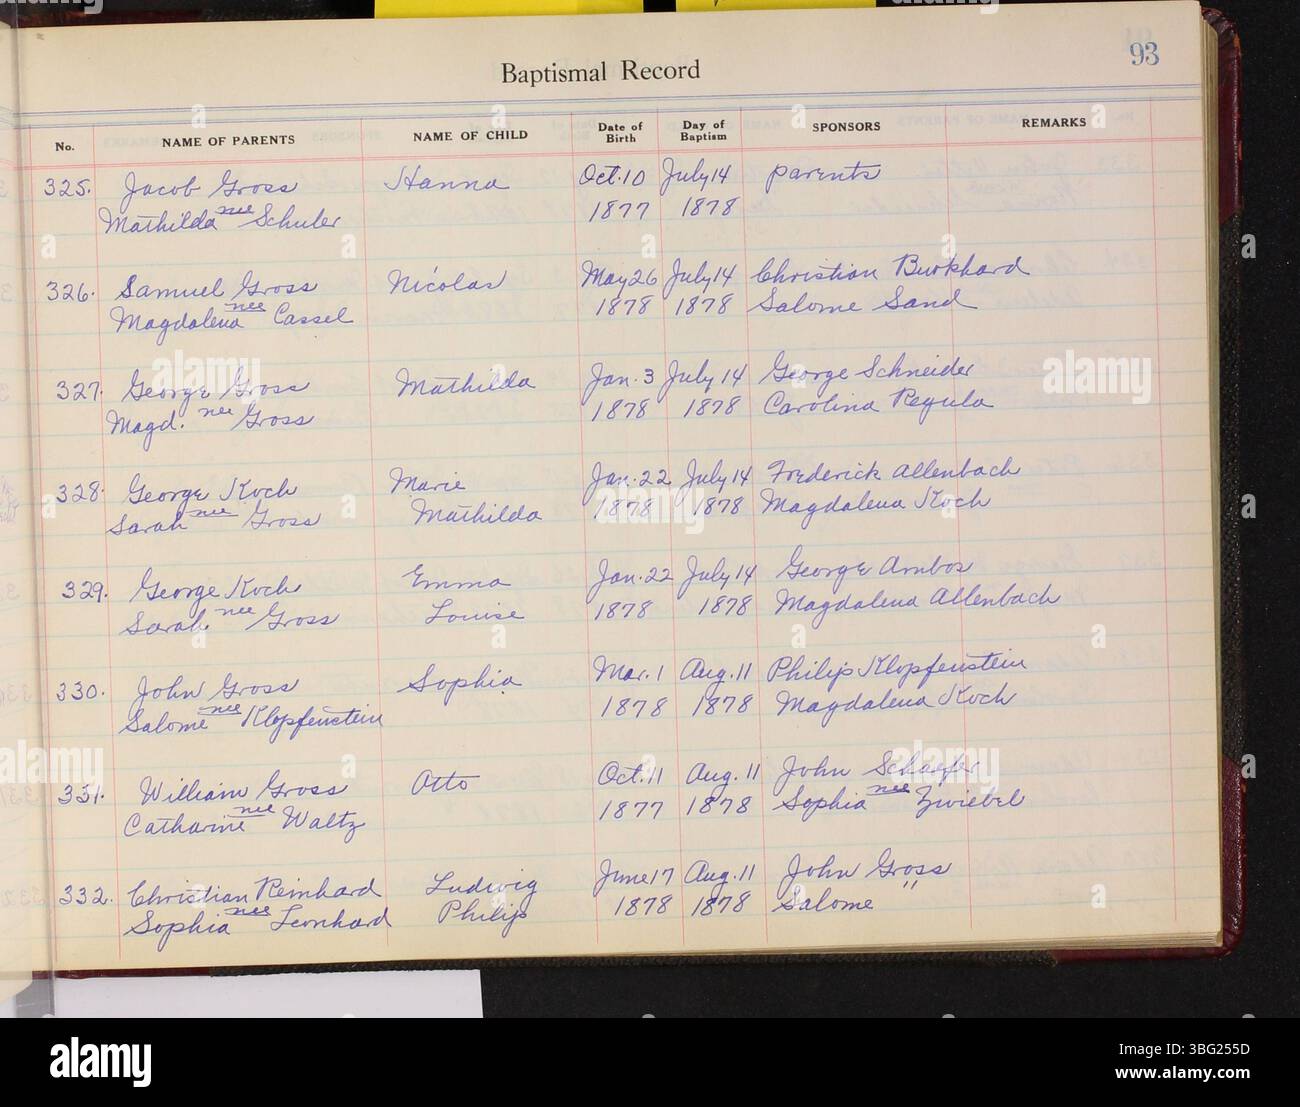 93
Baptismal Record
No. NAME OF PARENTS NAME OF CHILD Date of Birth Day of Baptism SPONSORS REMARKS
325. Jacob Gross Hanna Oct. 10 July 14 parents
Mathilda nee Schuler 1877 1878
326. Samuel Gross Nicolas May 26 July 14 Christian Burkhard
Magdalena nee Cassel 1878 1878 Salome Sand
327. George Gross Mathilda Jan. 3 July 14 George Schneider
Magd. nee Gross 1878 1878 Carolina Regula
328. George Koch Marie Jan. 22 July 14 Frederick Allenbach
Sarah nee Gross Mathilda 1878 1878 Magdalena Koch
329. George Koch Emma Jan. 22 July 14 George Ambos
Sarah nee Gross Louise 1878 1878 Magdalena Allenbach
330. John Gross Sophia Mar. 1 Aug. 11 Philip Klopfenstein
Salome nee Klopfenstein 1878 1878 Magdalena Koch
331. William Gross Otto Oct. 11 Aug. 11 John Schaefer
Catharine nee Waltz 1877 1878 Sophia nee Zwiebel
332. Christian Reinhard Ludwig June 17 Aug. 11 John Gross
Sophia nee Leonhard Philip 1878 1878 Salome "
alamy
Image ID: 3BG255D
www.alamy.com